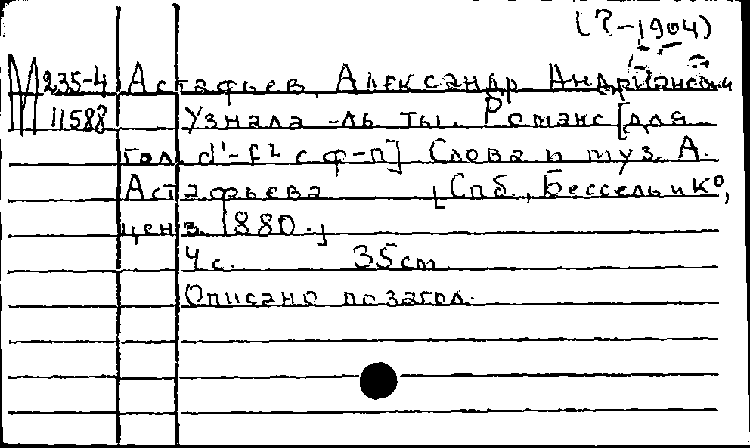 (?-1904)
М 235-4 Астафьев, Александр Андрианович
11588 Узнала-ль ты. Романс [для
гол. d¹-f² с ф-п] Слова и муз. А.
Астафьева [Спб., Бессель и К⁰,
ценз. 1880.]
4 с. 35cm
Описано по загол.